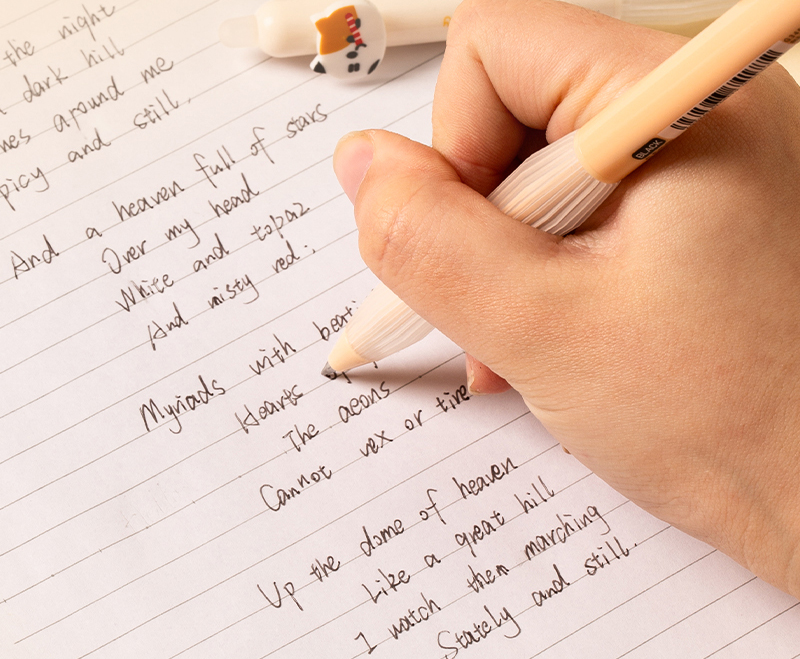 the night
dark hill
nes around me
picy and still,
And a heaven full of stars
Over my head
White and topaz
And misty red;
Myriads with beati
Hearts
The aeons
Cannot vex or tire
Up the dome of heaven
Like a great hill
I watch then marching
Stately and still.
BLACK